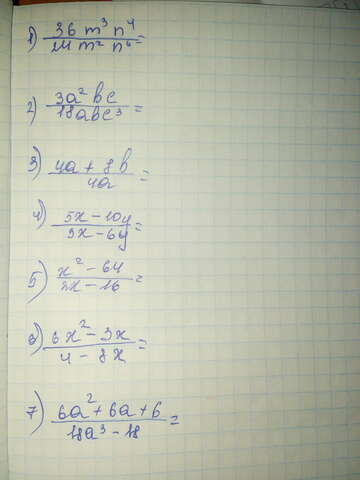 1) 36 m³ n⁴ / 24 m² n⁶ =
2) 3a² bc / 18abc³ =
3) 4a + 8b / 4a =
4) 5x - 10y / 3x - 6y =
5) x² - 64 / 2x - 16 =
6) 6x² - 3x / 4 - 8x =
7) 6a² + 6a + 6 / 18a³ - 18 =